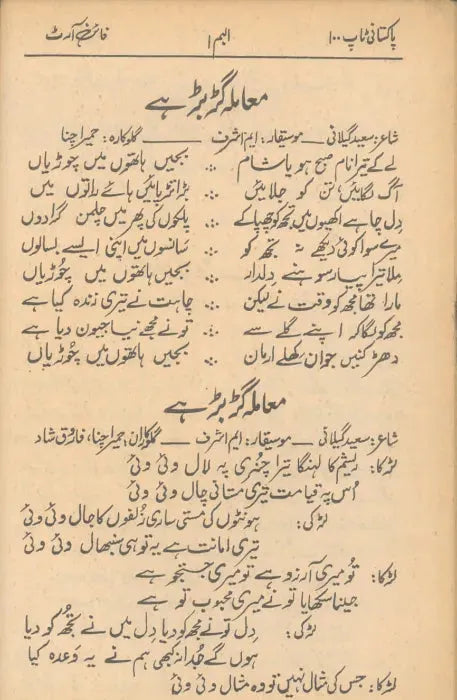 پاکستانی ٹاپ ۱۰۰ البم ۱ فائن آرٹ
معاملہ گڑبڑ ہے
شاعر: سعید گیلانی ــ موسیقار: ایم اشرف ــ گلوکارہ: حمیرا چنا
لے کے تیرا نام صبح ہو یا شام ؞ بجیں ہاتھوں میں چوڑیاں
آگ لگائیں تن کو جلائیں ؞ بڑا تڑپائیں ہائے راتوں میں
دل چاہے اکھیوں میں تجھ کو چھپا کے ؞ پلکوں کی پھر میں چلمن گرا دوں
میرے سوا کوئی دیکھے نہ تجھ کو ؞ سانسوں میں اپنی ایسے بسا لوں
ملا تیرا پیار سوہنے دلدار ؞ بجیں ہاتھوں میں چوڑیاں
مارا تھا مجھ کو وقت نے لیکن ؞ چاہت نے تیری زندہ کیا ہے
مجھ کو لگا کہ اپنے گلے سے ؞ تو نے مجھے نیا جیون دیا ہے
دھڑکنیں جواں کھلے ارمان ؞ بجیں ہاتھوں میں چوڑیاں
معاملہ گڑبڑ ہے
شاعر: سعید گیلانی ــ موسیقار: ایم اشرف ــ گلوکاران: حمیرا چنا، فاروق شاد
لڑکا: ریشم کا لہنگا تیرا چنری پہ لال وئی وئی
اس پہ قیامت تیری مستانی چال وئی وئی
لڑکی: ہونٹوں کی مستی ساری زلفوں کا جال وئی وئی
تیری امانت ہے یہ تو ہی سنبھال وئی وئی
لڑکا: تو میری آرزو ہے تو میری جستجو ہے
جینا سکھایا تو نے میری محبوب تو ہے
لڑکی: دل تو نے مجھ کو دیا دل میں نے تجھ کو دیا
ہوں گے جدا نہ کبھی ہم نے یہ وعدہ کیا
لڑکا: جس کی مثال نہیں تو وہ مثال وئی وئی